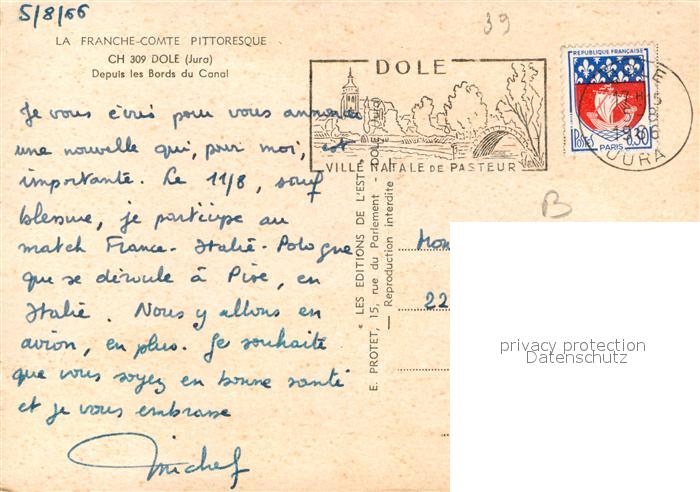 5/8/66
39
LA FRANCHE-COMTE PITTORESQUE
CH 309 DOLE (Jura)
Depuis les Bords du Canal
Je vous écris pour vous annoncer
une nouvelle qui, pour moi, est
importante. Le 11/8, sauf
blessure, je participe au
match France-Italie-Pologne
que se déroule à Pise, en
Italie. Nous y allons en
avion, en plus. Je souhaite
que vous soyez en bonne santé
et je vous embrasse
Michel
DOLE
VILLE NATALE DE PASTEUR
REPUBLIQUE FRANÇAISE
POSTES
0,30
PARIS
17-H
5
1966
JURA
B
" LES EDITIONS DE L'EST "
E. PROTET, 15, rue du Parlement - DOLE (Jura)
Reproduction interdite
22
privacy protection
Datenschutz